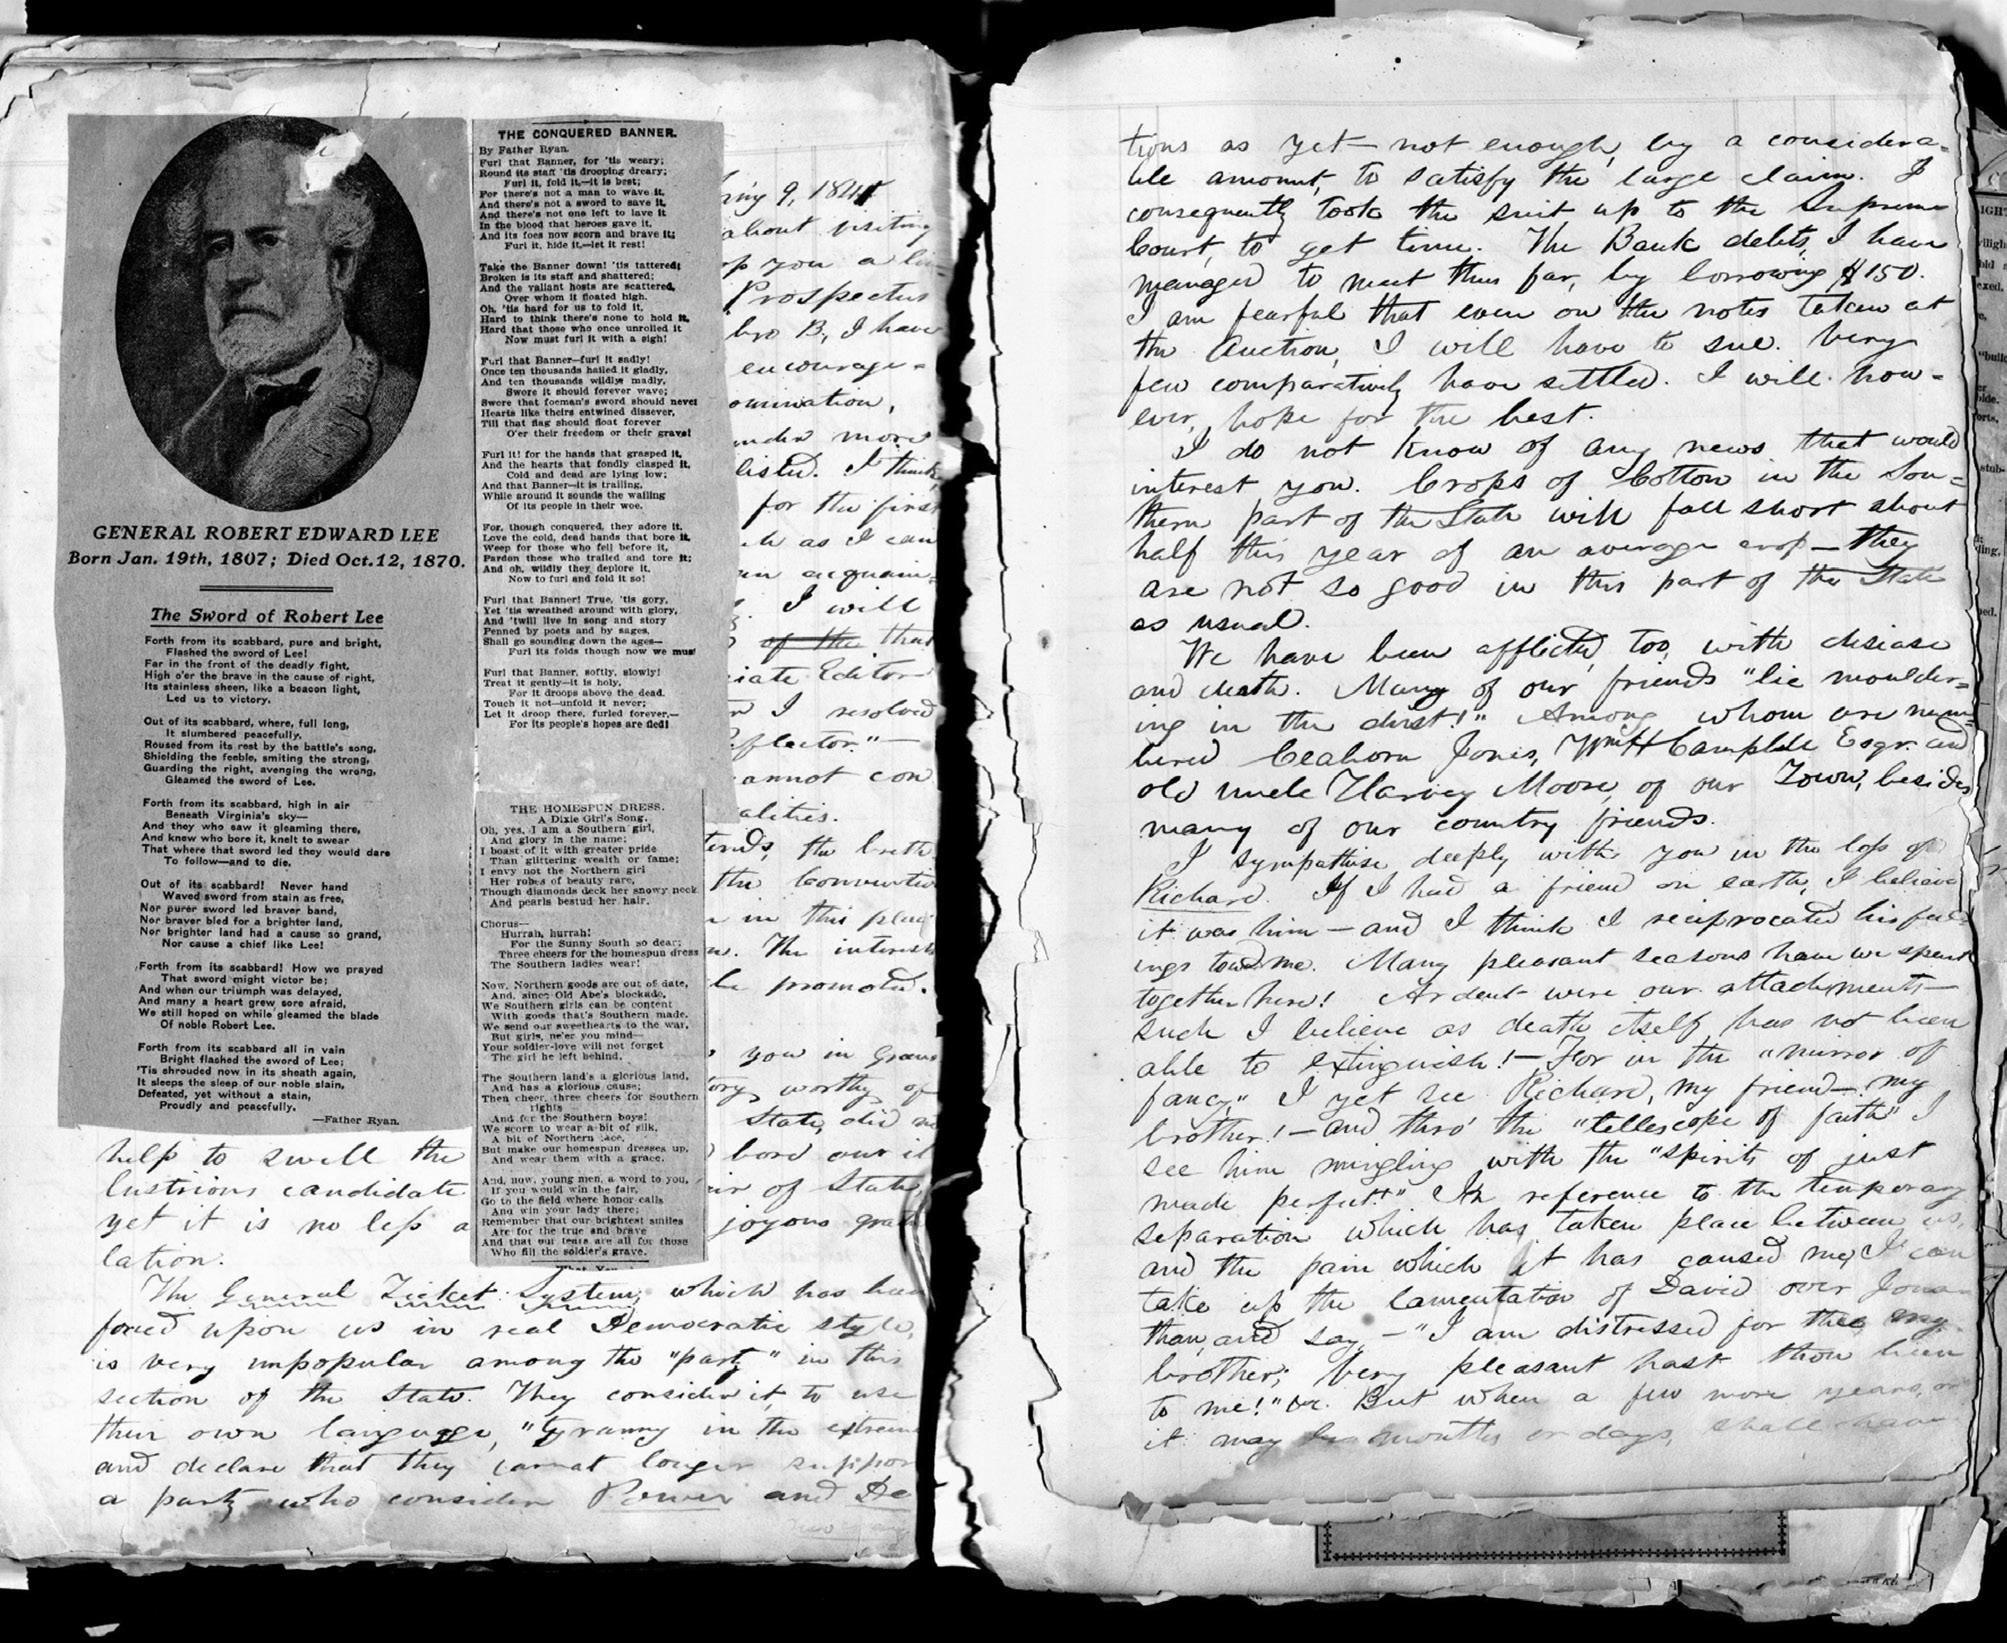 GENERAL ROBERT EDWARD LEE
Born Jan. 19th, 1807; Died Oct. 12, 1870.
The Sword of Robert Lee
Forth from its scabbard, pure and bright,
Flashed the sword of Lee!
Far in the front of the deadly fight,
High o'er the brave in the cause of right,
Its stainless sheen, like a beacon light,
Led us to victory.
Out of its scabbard, where, full long,
It slumbered peacefully,
Roused from its rest by the battle's song,
Shielding the feeble, smiting the strong,
Guarding the right, avenging the wrong,
Gleamed the sword of Lee.
Forth from its scabbard, high in air
Beneath Virginia's sky—
And they who saw it gleaming there,
And knew who bore it, knelt to swear
That where that sword led they would dare
To follow—and to die.
Out of its scabbard! Never hand
Waved sword from stain as free,
Nor purer sword led braver band,
Nor braver bled for a brighter land,
Nor brighter land had a cause so grand,
Nor cause a chief like Lee!
Forth from its scabbard! How we prayed
That sword might victor be;
And when our triumph was delayed,
And many a heart grew sore afraid,
We still hoped on while gleamed the blade
Of noble Robert Lee.
Forth from its scabbard all in vain
Bright flashed the sword of Lee;
'Tis shrouded now in its sheath again,
It sleeps the sleep of our noble slain,
Defeated, yet without a stain,
Proudly and peacefully.
—Father Ryan.
THE CONQUERED BANNER.
By Father Ryan.
Furl that Banner, for 'tis weary;
Round its staff 'tis drooping dreary;
Furl it, fold it,—it is best;
For there's not a man to wave it,
And there's not a sword to save it,
And there's not one left to lave it
In the blood that heroes gave it,
And its foes now scorn and brave it;
Furl it, hide it,—let it rest!
Take the Banner down! 'tis tattered;
Broken is its staff and shattered;
And the valiant hosts are scattered,
Over whom it floated high.
Oh, 'tis hard for us to fold it,
Hard to think there's none to hold it,
Hard that those who once unrolled it
Now must furl it with a sigh!
Furl that Banner—furl it sadly!
Once ten thousands hailed it gladly,
And ten thousands wildly, madly,
Swore it should forever wave;
Swore that foeman's sword should never
Hearts like theirs entwined dissever,
Till that flag should float forever
O'er their freedom or their grave!
Furl it! for the hands that grasped it,
And the hearts that fondly clasped it,
Cold and dead are lying low;
And that Banner—it is trailing,
While around it sounds the wailing
Of its people in their woe.
For, though conquered, they adore it,
Love the cold, dead hands that bore it,
Weep for those who fell before it,
Pardon those who trailed and tore it;
And oh, wildly they deplore it,
Now to furl and fold it so!
Furl that Banner! True, 'tis gory,
Yet 'tis wreathed around with glory,
And 'twill live in song and story
Penned by poets and by sages,
Shall go sounding down the ages—
Furl its folds though now we must
Furl that Banner, softly, slowly!
Treat it gently—it is holy,
For it droops above the dead.
Touch it not—unfold it never;
Let it droop there, furled forever,—
For its people's hopes are fled!
THE HOMESPUN DRESS.
A Dixie Girl's Song.
Oh, yes, I am a Southern girl,
And glory in the name;
I boast of it with greater pride
Than glittering wealth or fame;
I envy not the Northern girl
Her robes of beauty rare,
Though diamonds deck her snowy neck
And pearls bestud her hair.
Chorus—
Hurrah, hurrah!
For the Sunny South so dear;
Three cheers for the homespun dress
The Southern ladies wear!
Now, Northern goods are out of date,
And, since Old Abe's blockade,
We Southern girls can be content
With goods that's Southern made.
We send our sweethearts to the war,
But girls, ne'er you mind—
Your soldier-love will not forget
The girl he left behind.
The Southern land's a glorious land,
And has a glorious cause;
Then cheer, three cheers for Southern
rights
And for the Southern boys!
We scorn to wear a bit of silk,
A bit of Northern lace,
But make our homespun dresses up,
And wear them with a grace.
And, now, young men, a word to you,
If you would win the fair,
Go to the field where honor calls
And win your lady there;
Remember that our brightest smiles
Are for the true and brave
And that our tears are all for those
Who fill the soldier's grave.
9, 184
about visiting
you a
Prospectus
bro B, I have
encourage=
omination,
more
listed. I think
for the first
as I can
acquain=
I will
of the that
iate Editor
I resolved
eflector."—
annot con
alities.
the breth
the Convention
in this place
The interests
be promoted.
you in
tory worthy of
State, did
bore our il
of State,
joyous
help to swell the
lustrious candidate
yet it is no less a
lation.
The General Ticket System, which has been
forced upon us in real Democratic style,
is very unpopular among the "party" in this
section of the State. They consider it, to use
their own language, "tyranny in the extreme
and declare that they cannot longer suppor
a party who consider Power and De
tions as yet—not enough, by a considera=
ble amount, to satisfy the large claim. I
consequently took the suit up to the Supreme
Court, to get time. The Bank debts, I have
managed to meet thus far, by borrowing $150.
I am fearful that even on the notes taken at
the Auction, I will have to sue. Very
few comparatively have settled. I will how=
ever, hope for the best.
I do not know of any news that would
interest you. Crops of Cotton in the Sou=
thern part of the State will fall short about
half this year of an average crop—they
are not so good in this part of the State
as usual.
We have been afflicted, too, with disease
and death. Many of our friends "lie moulder=
ing in the dust!" Among whom are num=
bered Ceaborn Jones, Wm H Campbell Esqr. and
old uncle Harvey Moore, of our Town, besides
many of our country friends.
I sympathise deeply with you in the loss of
Richard. If I had a friend on earth, I believe
it was him—and I think I reciprocated his feel=
ings tow'd me. Many pleasant seasons have we spent
together here! Ardent were our attachments—
such I believe as death itself has not been
able to extinguish!—For in the "mirror of
fancy," I yet see Richard, my friend—my
brother!—and thro' the "tellescope of faith" I
see him mingling with the "spirits of just
made perfect!" In reference to the temporary
separation which has taken place between us,
and the pain which it has caused me, I can
take up the lamentation of David over Jona=
than, and say—"I am distressed for thee my
brother; very pleasant hast thou been
to me!" &c. But when a few more years, or
it may be months or days, shall have